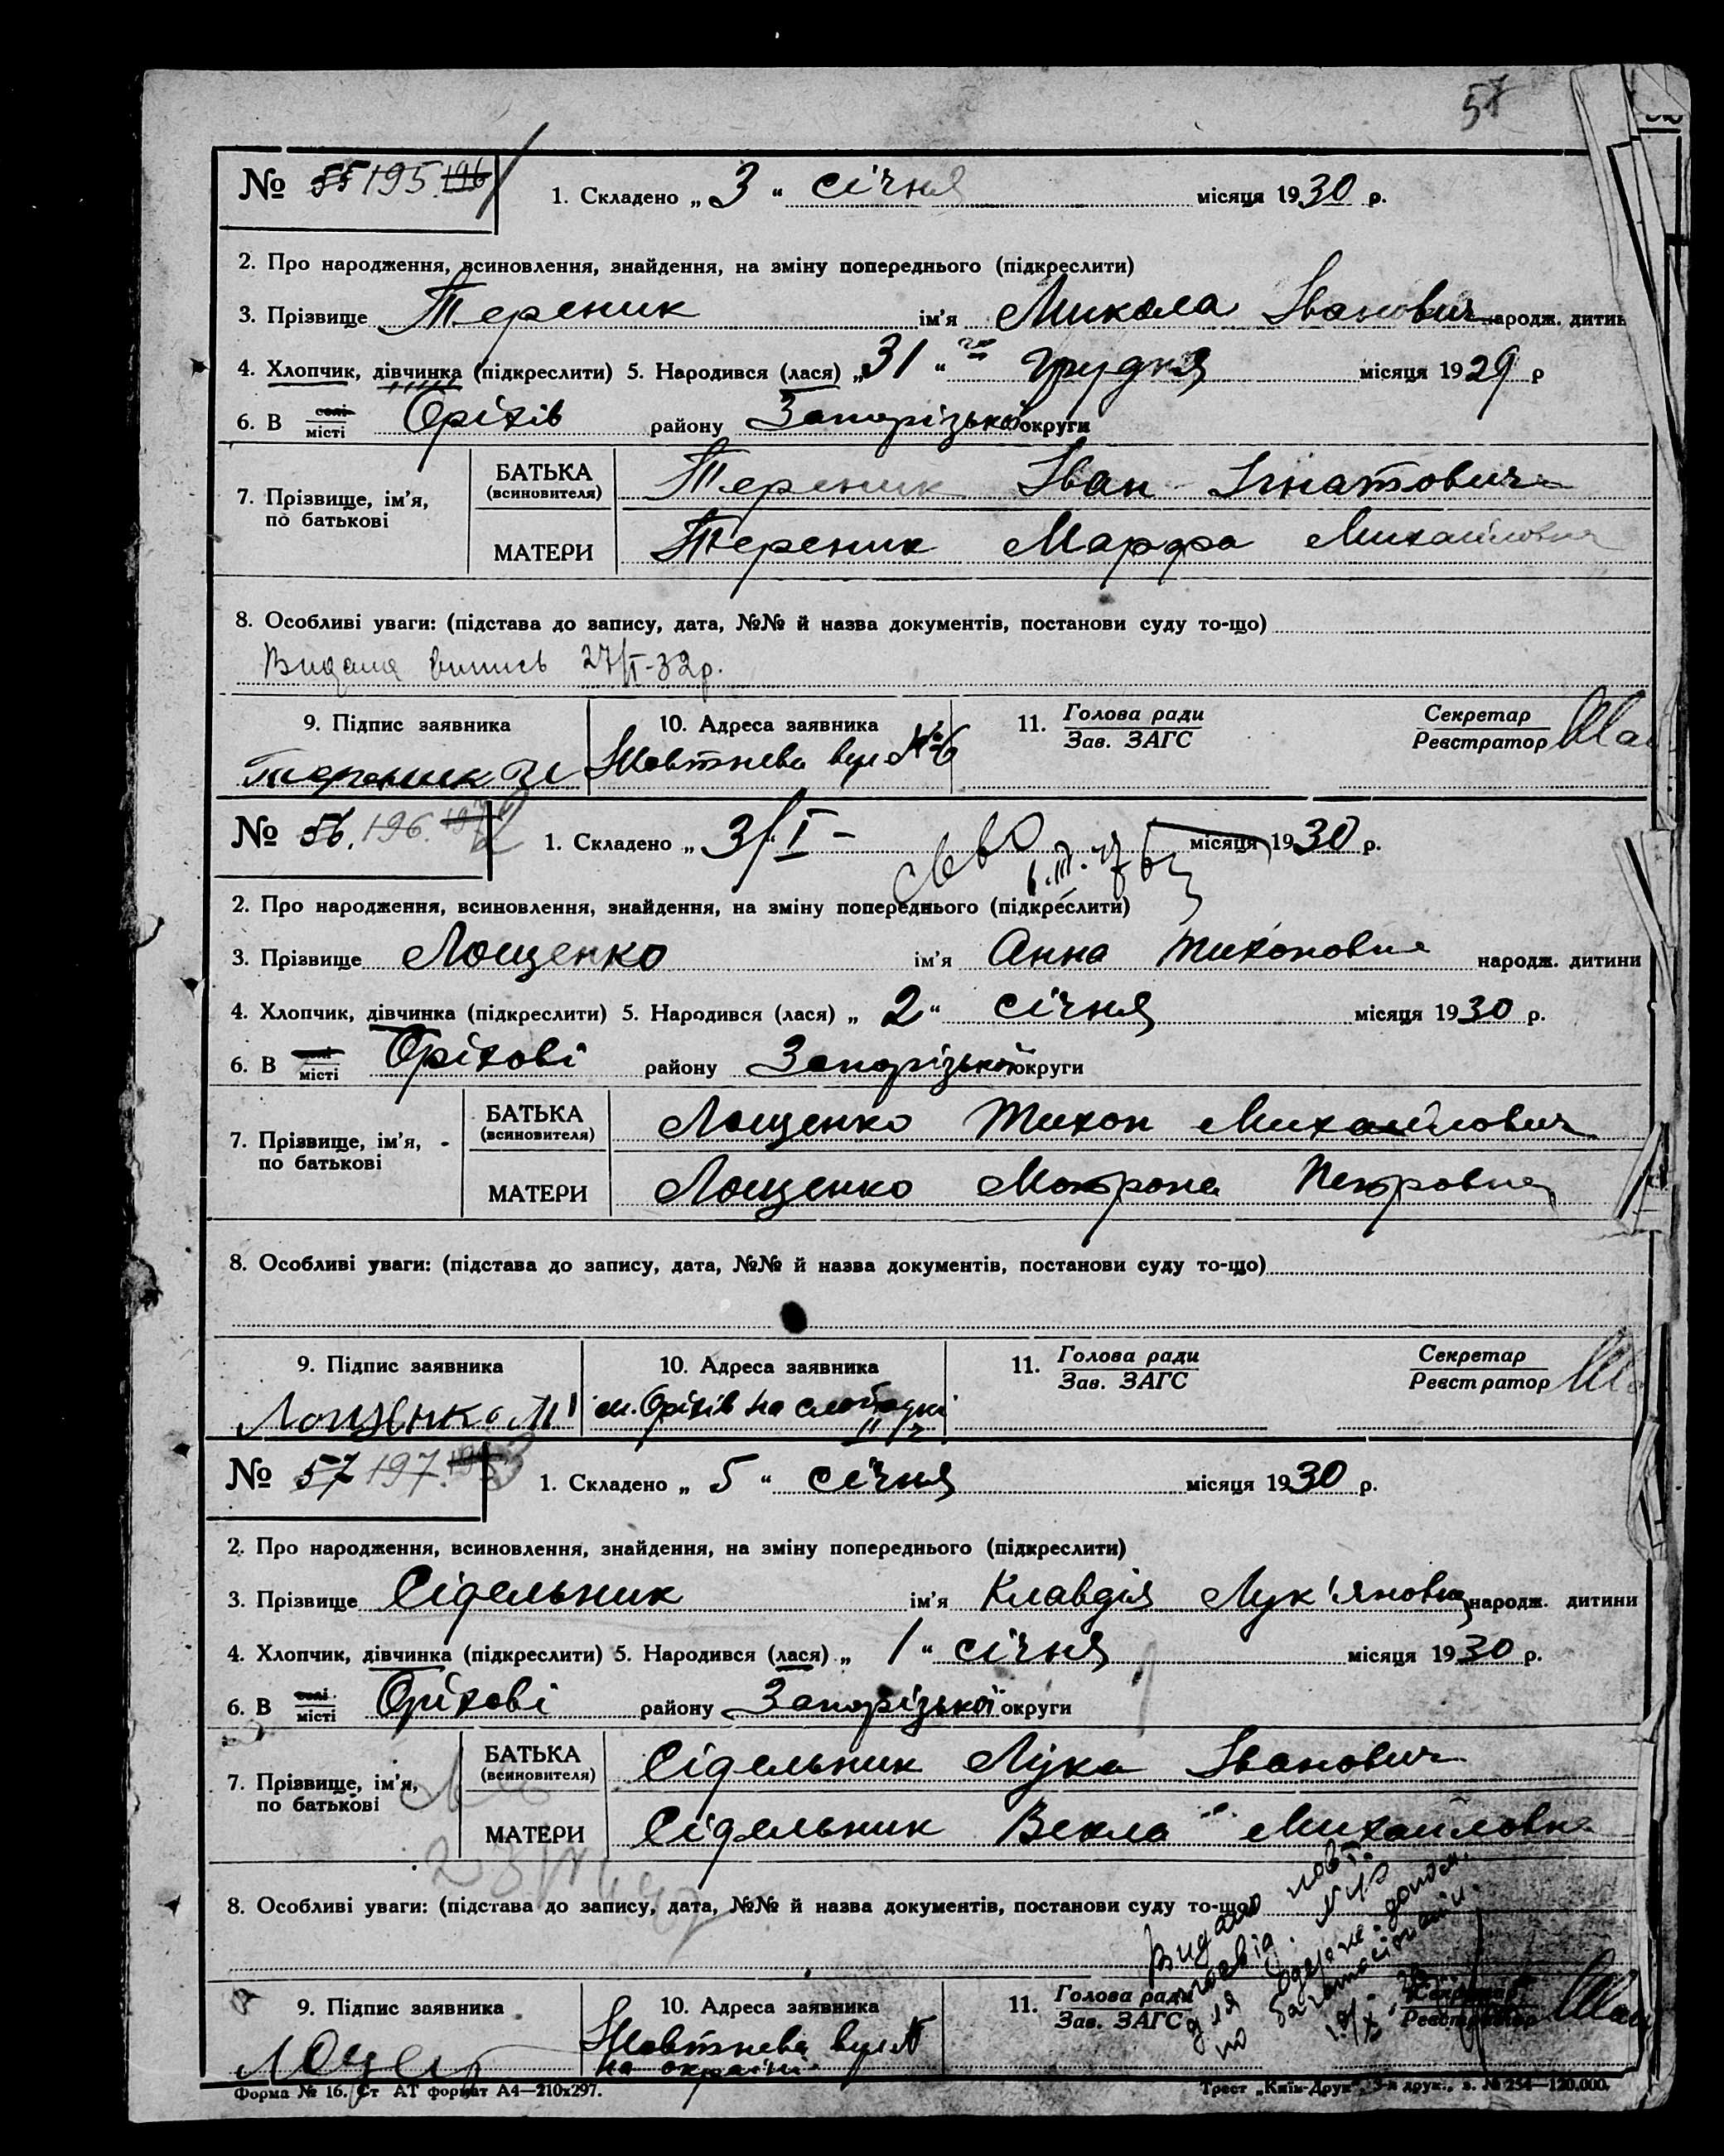 57
№ 55 195 196 1. Складено „ 3 “ січня місяця 1930 р.
2. Про народження, всиновлення, знайдення, на зміну попереднього (підкреслити)
3. Прізвище Тереник ім’я Микола Іванович народж. дитин
4. Хлопчик, дівчинка (підкреслити) 5. Народився (лася) „ 31 “ грудня місяця 1929 р
6. В селі місті Оріхів району Запорізької округи
7. Прізвище, ім’я, по батькові
БАТЬКА (всиновителя) Тереник Іван Ігнатович
МАТЕРИ Тереник Марфа Михайловна
8. Особливі уваги: (підстава до запису, дата, №№ й назва документів, постанови суду то-що)
Видана випись 27/I-32р.
9. Підпис заявника 10. Адреса заявника 11. Голова ради Зав. ЗАГС Секретар Реєстратор
Тереник Жовтнева вул №6
№ 56. 196. 197 1. Складено „ 3/I – місяця 1930 р.
6.III.
2. Про народження, всиновлення, знайдення, на зміну попереднього (підкреслити)
3. Прізвище Лощенко ім’я Анна Тихоновна народж. дитини
4. Хлопчик, дівчинка (підкреслити) 5. Народився (лася) „ 2 “ січня місяця 1930 р.
6. В селі місті Оріхові району Запорізької округи
7. Прізвище, ім’я, по батькові
БАТЬКА (всиновителя) Лощенко Тихон Михайлович
МАТЕРИ Лощенко Мотрона Петровна
8. Особливі уваги: (підстава до запису, дата, №№ й назва документів, постанови суду то-що)
9. Підпис заявника 10. Адреса заявника 11. Голова ради Зав. ЗАГС Секретар Реєстратор
Лощенко м. Оріхів на слободці
№ 57 197. 1. Складено „ 5 “ січня місяця 1930 р.
2. Про народження, всиновлення, знайдення, на зміну попереднього (підкреслити)
3. Прізвище Сідельник ім’я Клавдія Лук'яновна народж. дитини
4. Хлопчик, дівчинка (підкреслити) 5. Народився (лася) „ 1 “ січня місяця 1930 р.
6. В селі місті Оріхові району Запорізької округи
7. Прізвище, ім’я, по батькові
БАТЬКА (всиновителя) Сідельник Лука Іванович
МАТЕРИ Сідельник Векла Михайловна
8. Особливі уваги: (підстава до запису, дата, №№ й назва документів, постанови суду то-що)
Видано повт.
для
по
9. Підпис заявника 10. Адреса заявника 11. Голова ради Зав. ЗАГС Секретар Реєстратор
Жовтнева вул
на окраїні
Форма № 16. Ст АТ формат А4—210х297. Трест „Київ-Друк“, 3-я друк., з. № 254—120.000.